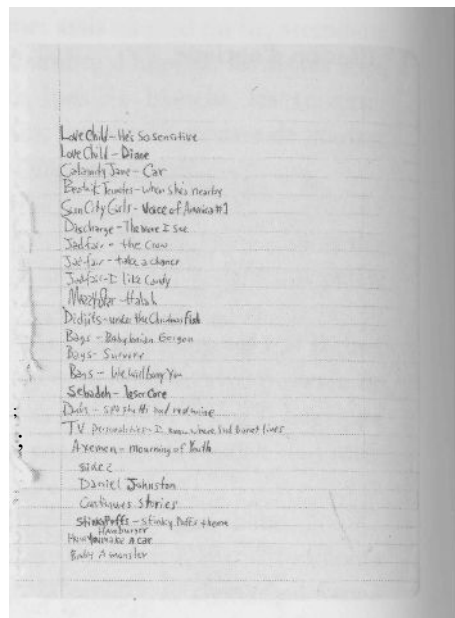 Love Child - He's so sensitive
Love Child - Diane
Calamity Jane - Car
Beatnik Termites - when she's nearby
Sun City Girls - Voice of America #1
Discharge - The more I see
Jad fair - the Crow
Jad fair - take a chance
Jad fair - I like Candy
Mazzy Star - Halah
Didjits - under the Christmas Fish
Bags - Babylonian Gorgon
Bags - Survive
Bags - We will bury You
Sebadoh - loser Core
- spaghetti and red wine
TV personalities - I know where Syd Barret lives
Axemen - mourning of Youth
Side 2
Daniel Johnston
Continues Stories
Stinky Puffs - Stinky Puffs theme
Hamburger
make a car
Baby A monster